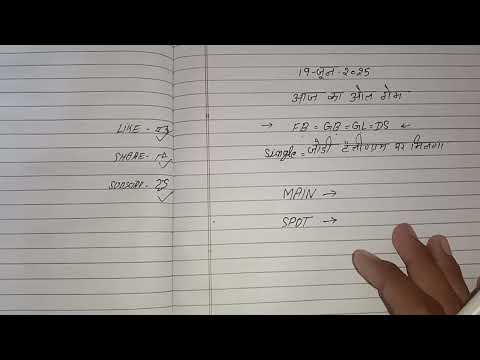 LIKE -
SHARE -
SUBSCRIBE -
19-जून-2025
आज का ओल गेम
→ FB = GB = GL = DS ←
Single = जोडी टेलीग्राम पर मिलेगा
MAIN →
SPOT →